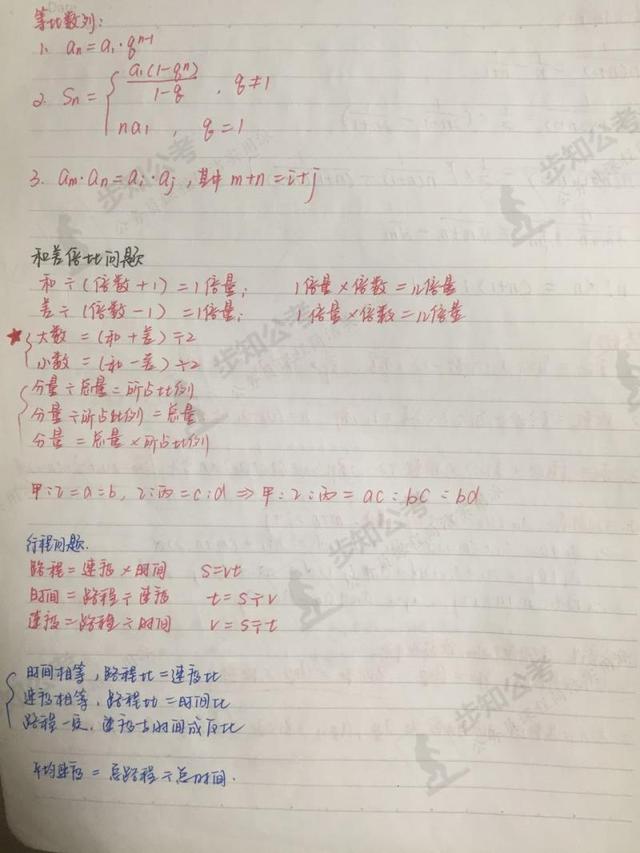 等比数列:
1. aₙ=a₁·qⁿ⁻¹
2. Sₙ= { a₁(1-qⁿ)/1-q , q≠1
na₁ , q=1
3. aₘ·aₙ=aᵢ·aⱼ,其中m+n=i+j
和差倍比问题
和÷(倍数+1)=1倍量; 1倍量×倍数=几倍量
差÷(倍数-1)=1倍量; 1倍量×倍数=几倍量
★ 大数=(和+差)÷2
小数=(和-差)÷2
分量÷总量=所占比例
分量÷所占比例=总量
分量=总量×所占比例
甲:乙=a:b,乙:丙=c:d⇒甲:乙:丙=ac:bc:bd
行程问题.
路程=速度×时间 s=vt
时间=路程÷速度 t=s÷v
速度=路程÷时间 v=s÷t
时间相等,路程比=速度比
速度相等,路程比=时间比
路程一定,速度与时间成反比
平均速度=总路程÷总时间.
步知公考
步知公考
步知公考
步知公考